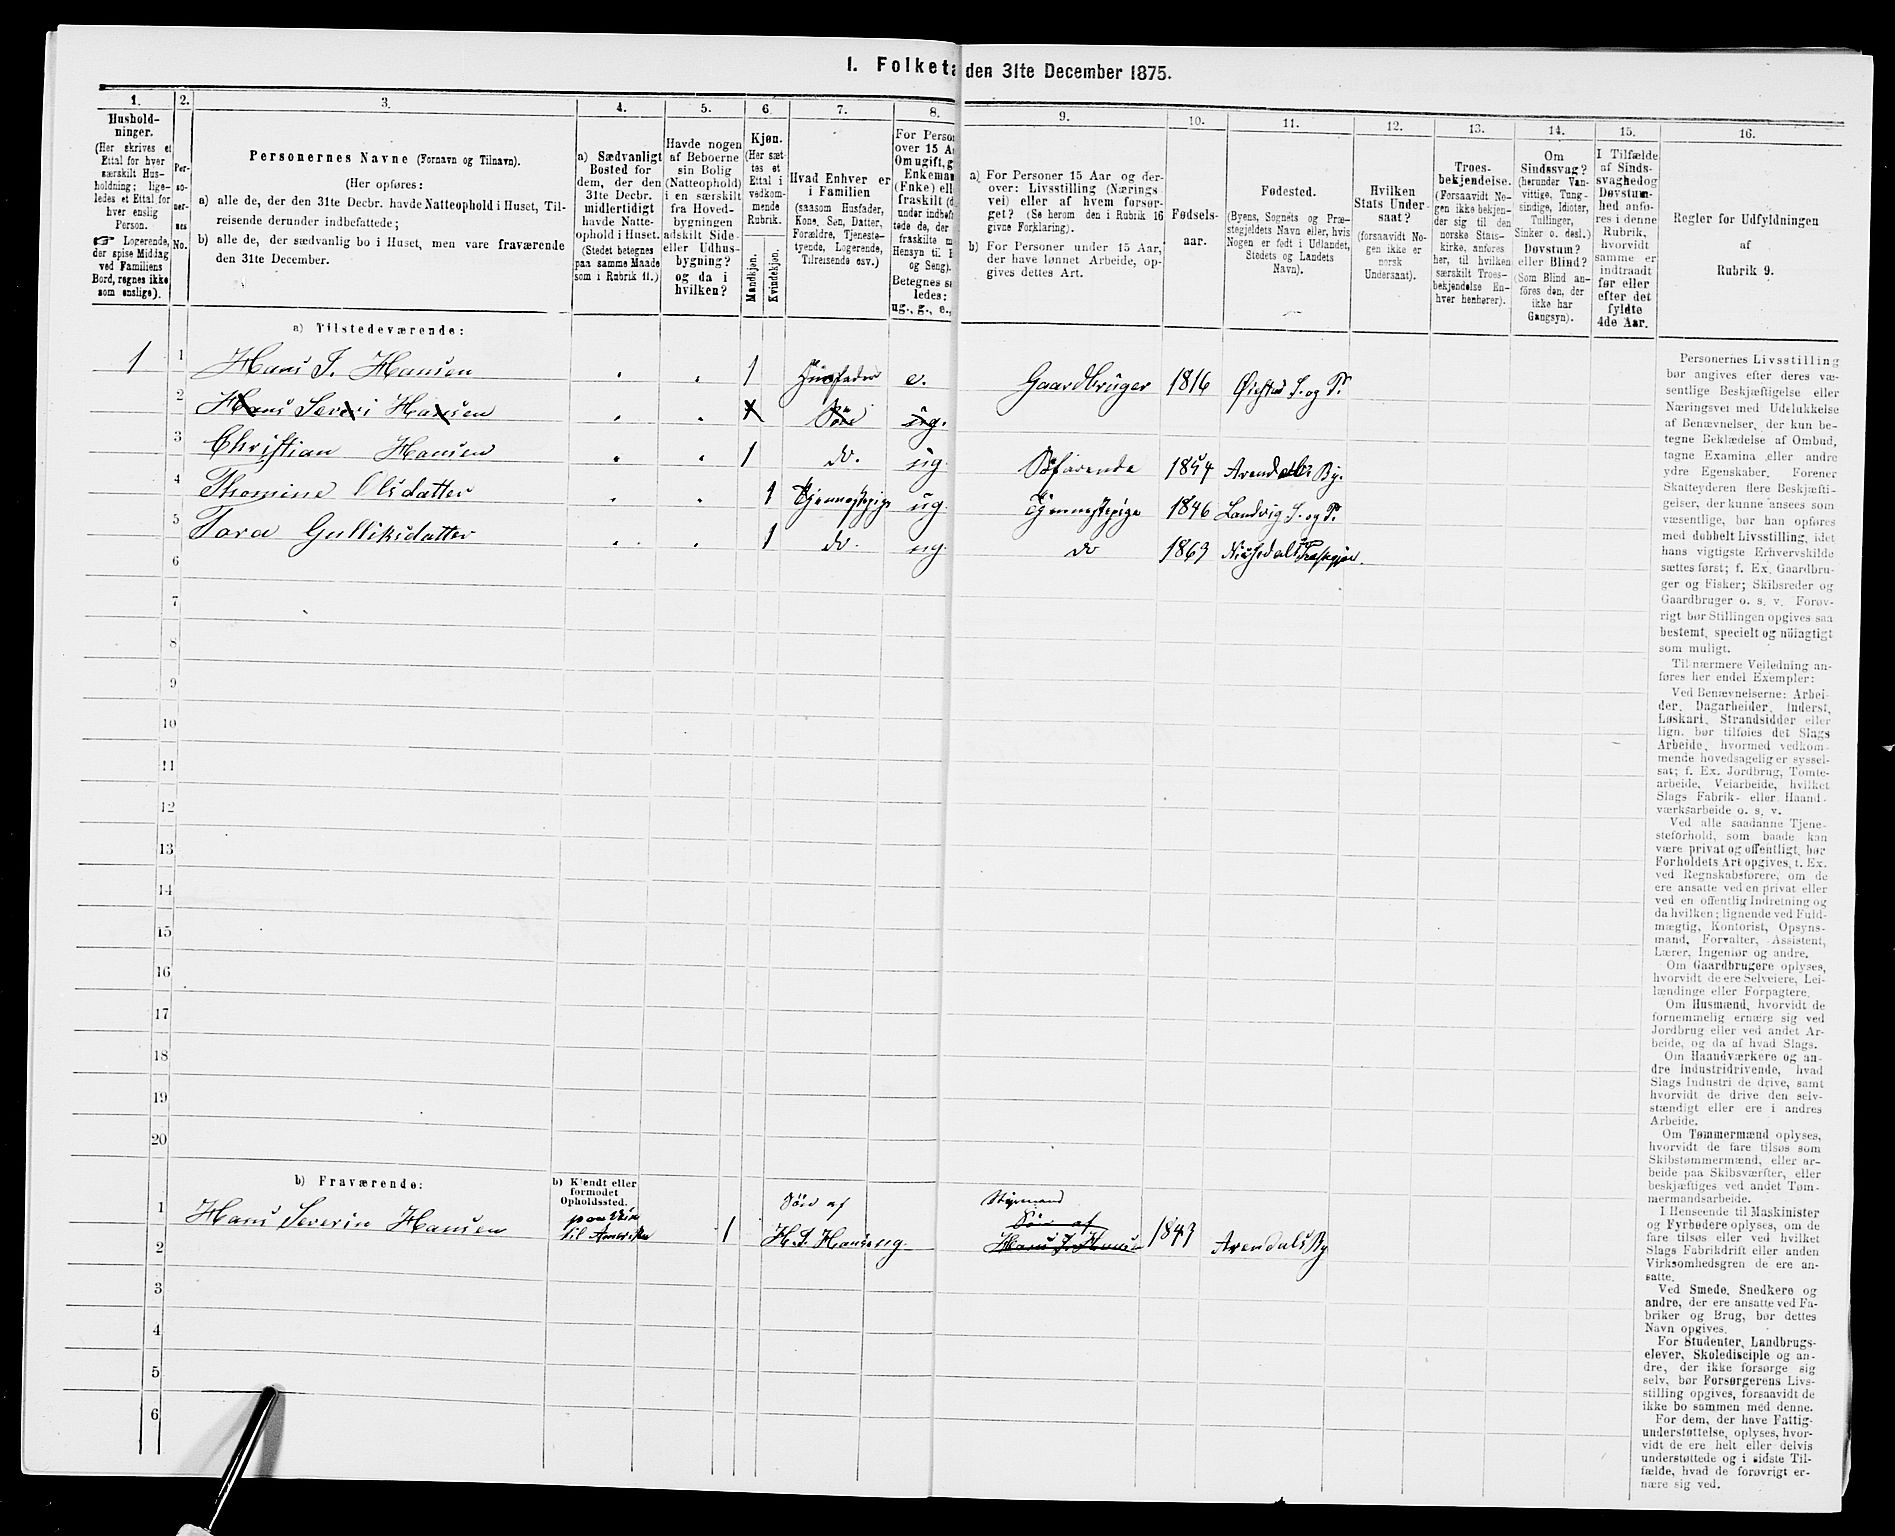 I. Folketæ den 31te December 1875.
1.
Hushold-
ninger.
(Her skrives et
Ettal for hver
særskilt Hus-
holdning; lige-
ledes et Ettal for
hver enslig
Person.
☞ Logerende,
der spise Middag
ved Familiens
Bord, regnes ikke
som enslige).
2.
Per-
so-
ner-
nes
No.
3.
Personernes Navne (Fornavn og Tilnavn).
(Her opføres:
a) alle de, der den 31te Decbr. havde Natteophold i Huset, Til-
reisende derunder indbefattede;
b) alle de, der sædvanlig bo i Huset, men vare fraværende
den 31te December.
4.
a) Sædvanligt
Bosted for
dem, der den
31te Decbr.
midlertidigt
havde Natte-
ophold i Huset.
(Stedet betegnes
paa samme Maade
som i Rubrik 11.)
5.
Havde nogen
af Beboerne
sin Bolig
(Natteophold)
i en særskilt
fra Hoved-
bygningen
adskilt Side-
eller Udhus-
bygning?
og da i
hvilken?
6.
Kjøn.
(Her sæt-
tes et
Ettal i
vedkom-
mende
Rubrik.
Mandkjøn.
Kvindekjøn.
7.
Hvad Enhver er
i Familien
(saasom Husfader,
Kone, Søn, Datter,
Forældre, Tjeneste-
tyende, Logerende,
Tilreisende osv.)
8.
For Perso
over 15 A
Om ugift, g
Enkema
(Enke) ell
fraskilt (d
under indbef
tede de, der
fraskilte me
Hensyn til B
og Seng).
Betegnes s
ledes:
ug., g., e.,
9.
a) For Personer 15 Aar og der-
over: Livsstilling (Nærings-
vei) eller af hvem forsør-
get? (Se herom den i Rubrik 16
givne Forklaring).
b) For Personer under 15 Aar,
der have lønnet Arbeide, op-
gives dettes Art.
10.
Fødsels-
aar.
11.
Fødested.
(Byens, Sognets og Præ-
stegjeldets Navn eller, hvis
Nogen er født i Udlandet,
Stedets og Landets
Navn).
12.
Hvilken
Stats Under
saat?
(forsaavidt No-
gen ikke er
norsk
Undersaat).
13.
Troes-
bekjendelse.
(Forsaavidt No-
gen ikke bekjen-
der sig til den
norske Stats-
kirke, anføres
her, til hvilken
særskilt Troes-
bekjendelse En-
hver henhører).
14.
Om
Sindssvag?
(herunder Van-
vittige, Tung-
sindige, Idioter,
Tullinger,
Sinker o. desl.)
Døvstum?
eller Blind?
(Som Blind an-
føres den, der
ikke har
Gangsyn).
15.
I Tilfælde
af Sinds-
svaghed og
Døvstum-
hed anfø-
res i denne
Rubrik,
hvorvidt
samme er
indtraadt
før eller
efter det
fyldte
4de Aar.
16.
Regler for Udfyldningen
af
Rubrik 9.
a) Tilstedeværende:
1 1 Hans J. Hansen " " 1 Husfader e. Gaardbruger 1816 Øiestad S. og P.
2 Hans Severi Hansen " " 1 Søn ug.
3 Christian Hansen " " 1 do. ug. Søfarende 1854 Arendals By.
4 Thomine Olsdatter " " 1 Tjenestepige ug. Tjenestepige 1846 Landvig S. og P.
5 Tora Gulliksdatter " " 1 do. ug. do 1863
6
7
8
9
10
11
12
13
14
15
16
17
18
19
20
b) Fraværende:
b) Kjendt eller
formodet
Opholdssted.
1 Hans Severin Hansen paa Reise til Amerika 1 Søn af H. J. Hansen ug. Styrmand Søn af Hans J. Hansen 1843 Arendals By
2
3
4
5
6
Personernes Livsstilling
bør angives efter deres væ-
sentlige Beskjæftigelse eller
Næringsvei med Udelukkelse
af Benævnelser, der kun be-
tegne Beklædelse af Ombud,
tagne Examina eller andre
ydre Egenskaber. Forener
Skatteyderen flere Beskjæfti-
gelser, der kunne ansees som
væsentlige, bør han opføres
med dobbelt Livsstilling, idet
hans vigtigste Erhvervskilde
sættes først; f. Ex. Gaardbru-
ger og Fisker; Skibsreder og
Gaardbruger o. s. v. Forøv-
rigt bør Stillingen opgives saa
bestemt, specielt og nöiagtigt
som muligt.
Til nærmere Veiledning an-
føres her endel Exempler:
Ved Benævnelserne: Arbei-
der, Dagarbeider, Inderst,
Løskarl, Strandsidder eller
lign. bør tilføies det Slags
Arbeide, hvormed vedkom-
mende hovedsagelig er syssel-
sat; f. Ex. Jordbrug, Tomte-
arbeide, Veiarbeide, hvilket
Slags Fabrik- eller Haand-
værksarbeide o. s. v.
Ved alle saadanne Tjene-
steforhold, som baade kan
være privat og offentligt, bør
Forholdets Art opgives, f. Ex.
ved Regnskabsførere, om de
ere ansatte ved en privat eller
ved en offentlig Indretning og
da hvilken; lignende ved Fuld-
mægtig, Kontorist, Opsyns-
mand, Forvalter, Assistent,
Lærer, Ingeniør og andre.
Om Gaardbrugere oplyses,
hvorvidt de ere Selveiere, Lei-
lændinge eller Forpagtere.
Om Husmænd, hvorvidt de
fornemmelig ernære sig ved
Jordbrug eller ved andet Ar-
beide, og da af hvad Slags.
Om Haandværkere og an-
dre Industridrivende, hvad
Slags Industri de drive, samt
hvorvidt de drive den selv-
stændigt eller ere i andres
Arbeide.
Om Tømmermænd oplyses,
hvorvidt de fare tilsøs som
Skibstømmermænd, eller ar-
beide paa Skibsværfter, eller
beskjæftiges ved andet Tøm-
mermandsarbeide.
I Henseende til Maskinister
og Fyrbødere oplyses, om de
fare tilsøs eller ved hvilket
Slags Fabrikdrift eller anden
Virksomhedsgren de ere an-
satte.
Ved Smede, Snedkere og
andre, der ere ansatte ved Fa-
briker og Brug, bør dettes
Navn opgives.
For Studenter, Landbrugs-
elever, Skoledisciple og an-
dre, der ikke forsørge sig
selv, bør Forsørgerens Livs-
stilling opgives, forsaavidt de
ikke bo sammen med denne.
For dem, der have Fattig-
understøttelse, oplyses, hvor-
vidt de ere helt eller delvis
understøttede og i sidste Til-
fælde, hvad de forøvrigt er-
nære sig ved.